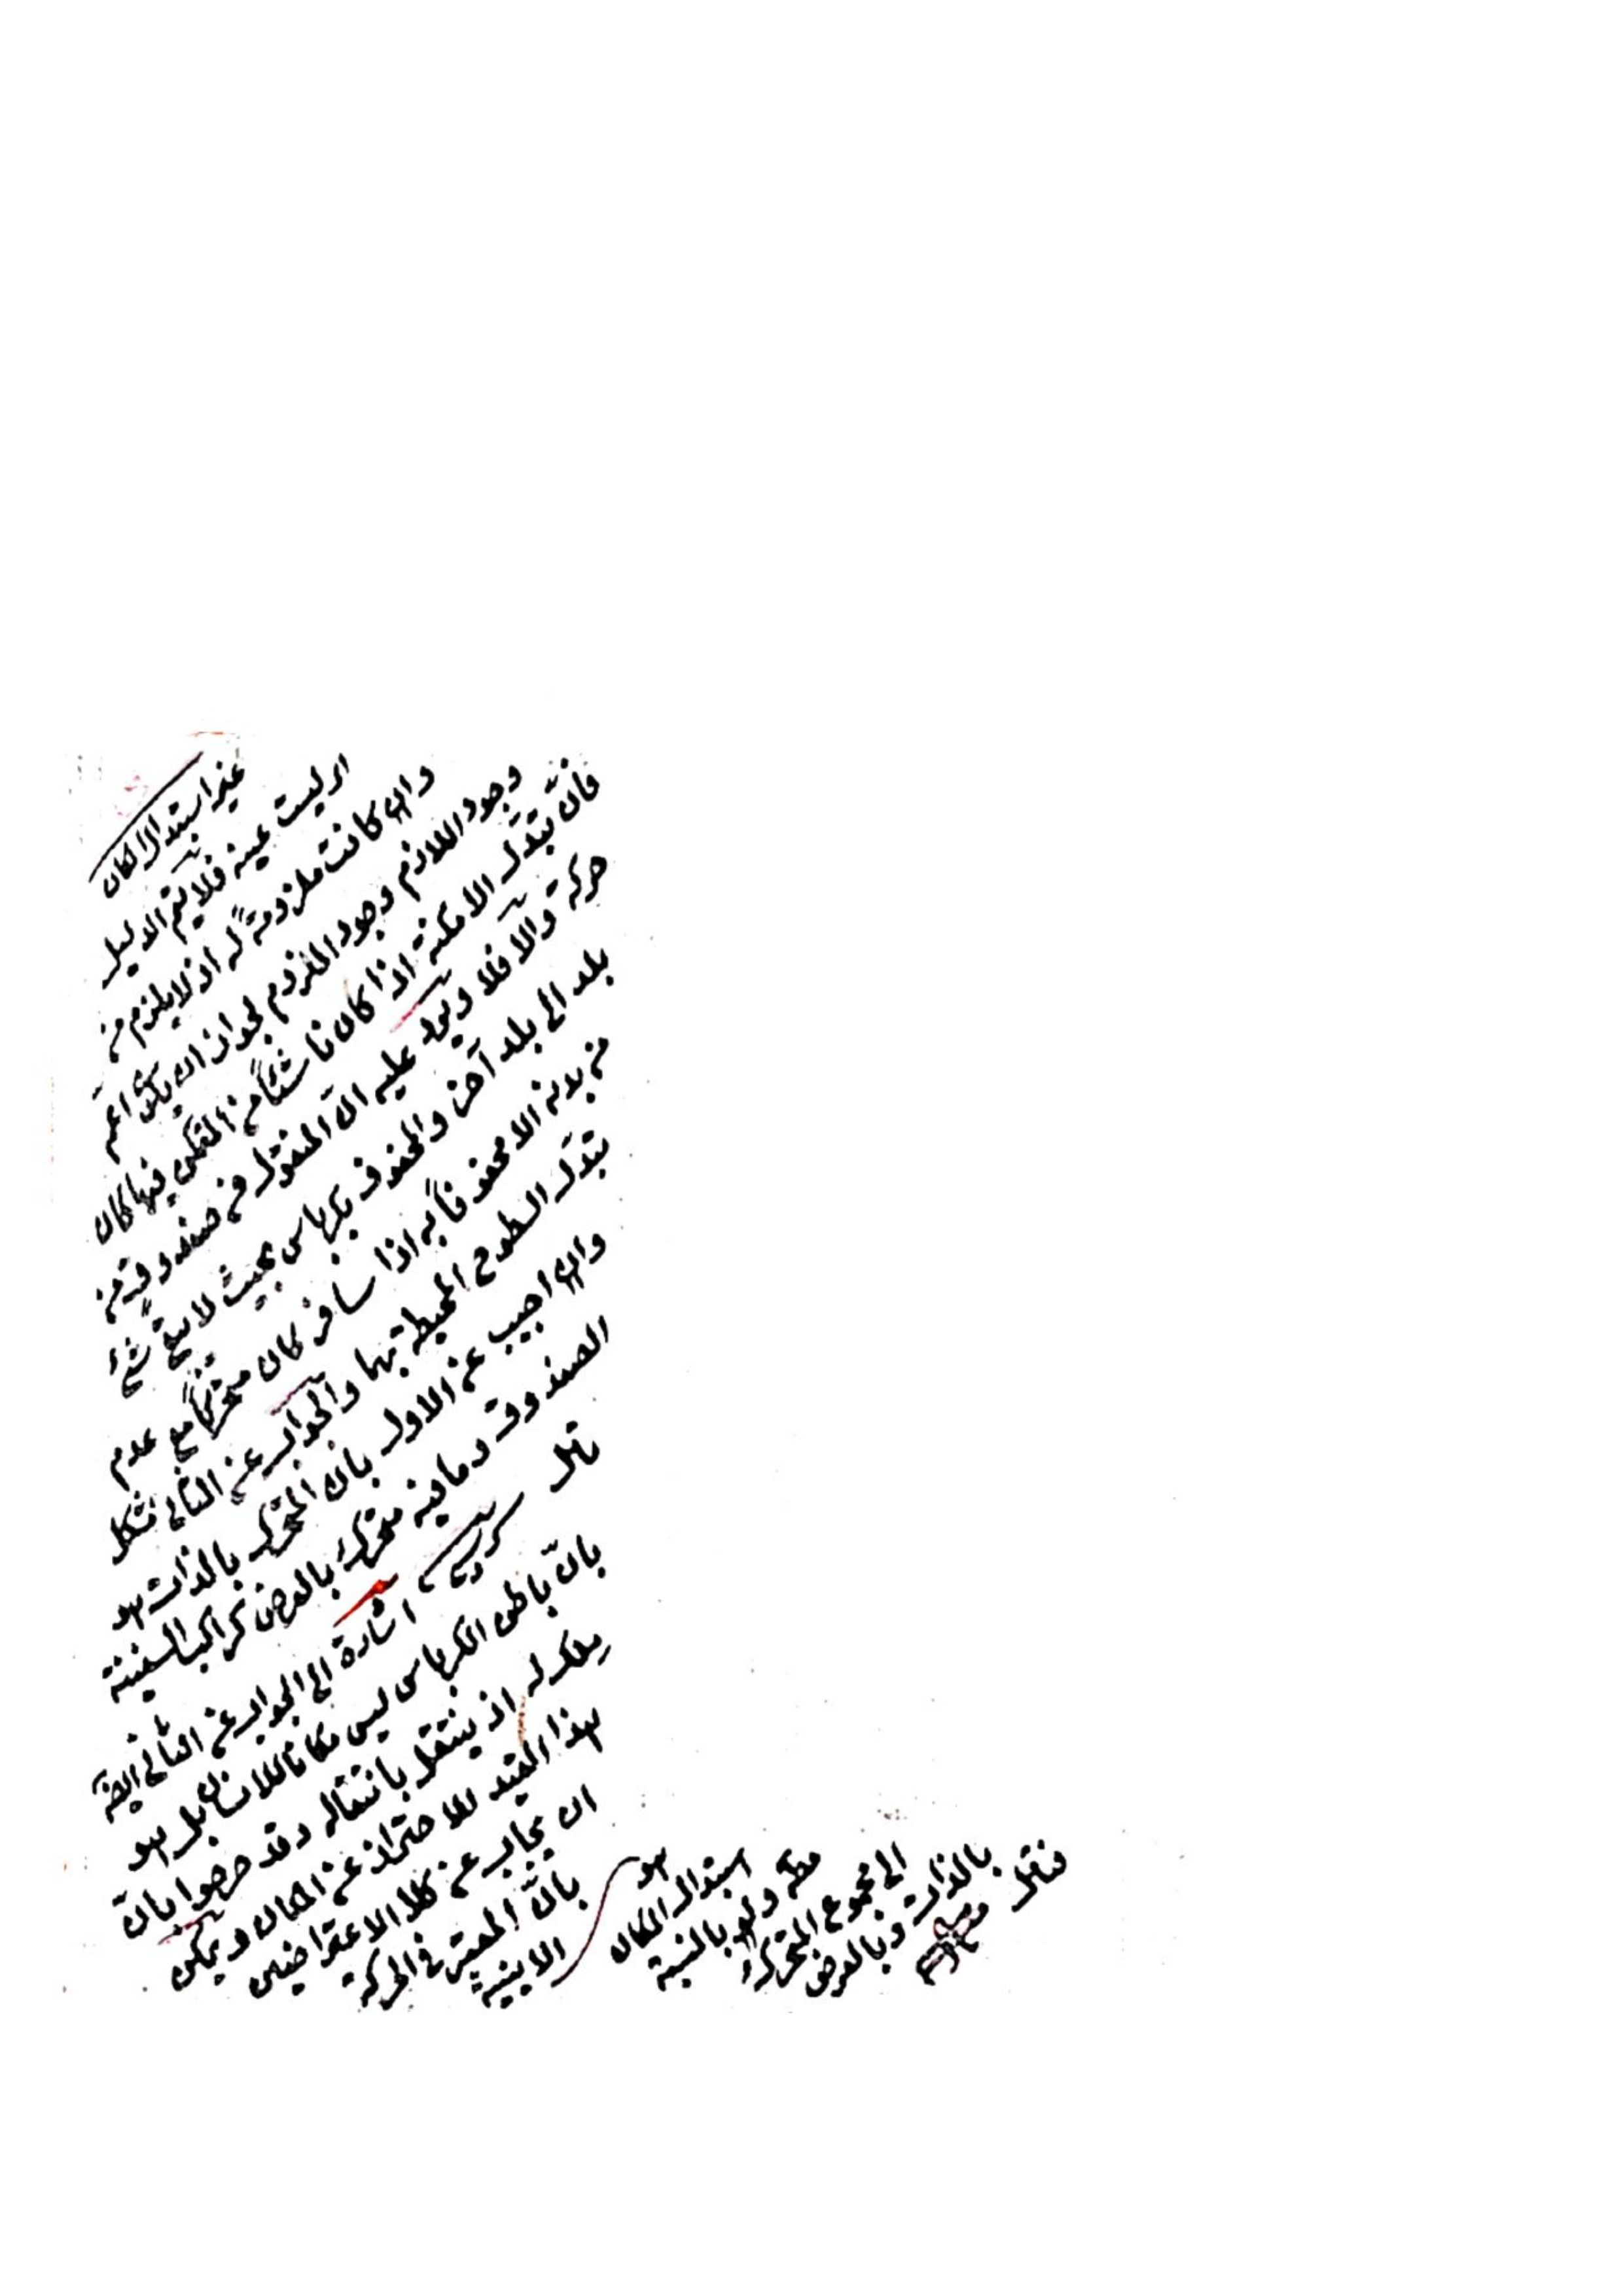 غير استبدال المكان
اذ ليست عينه فلا يتم الدليل
وان كانت ملزومة له اذ لا يلزم من
وجود اللازم وجود الملزوم لجواز ان يكون اعم
فان تبدل الامكنة اذا كان ناشئاً من المتمكن فيها كان
حركة والا فلا ويرد عليه ان المنقول في صندوق من
بلد الى بلد آخر والمحفوف بكرباس بحيث لا يبقى شئ
من بدنه الا محفوفاً به اذا سافر كان متحركاً مع عدم
تبدل السطوح المحيطة بها والجواب عن الثاني مشكل
وان اجيب عن الاول بان المتحرك بالذات هو
الصندوق وما فيه متحرك بالعرض كراكب السفينة
تأمل
اشارة الى الجواب عن الثاني ايضاً
بان باطن الكرباس ليس مكانا للانسان بل هو
ملك له اذ ينتقل بانتقاله وقد صرحوا بان
هذا القيد للاحتراز عن المكان ويمكن
ان يجاب عن كلا الاعتراضين
بان المعتبر في الحركة
الاينية
هو
استبدال المكان
مطلقا ولو بالنسبة
الى مجموع المتحرك
بالذات وبالعرض
فتأمل